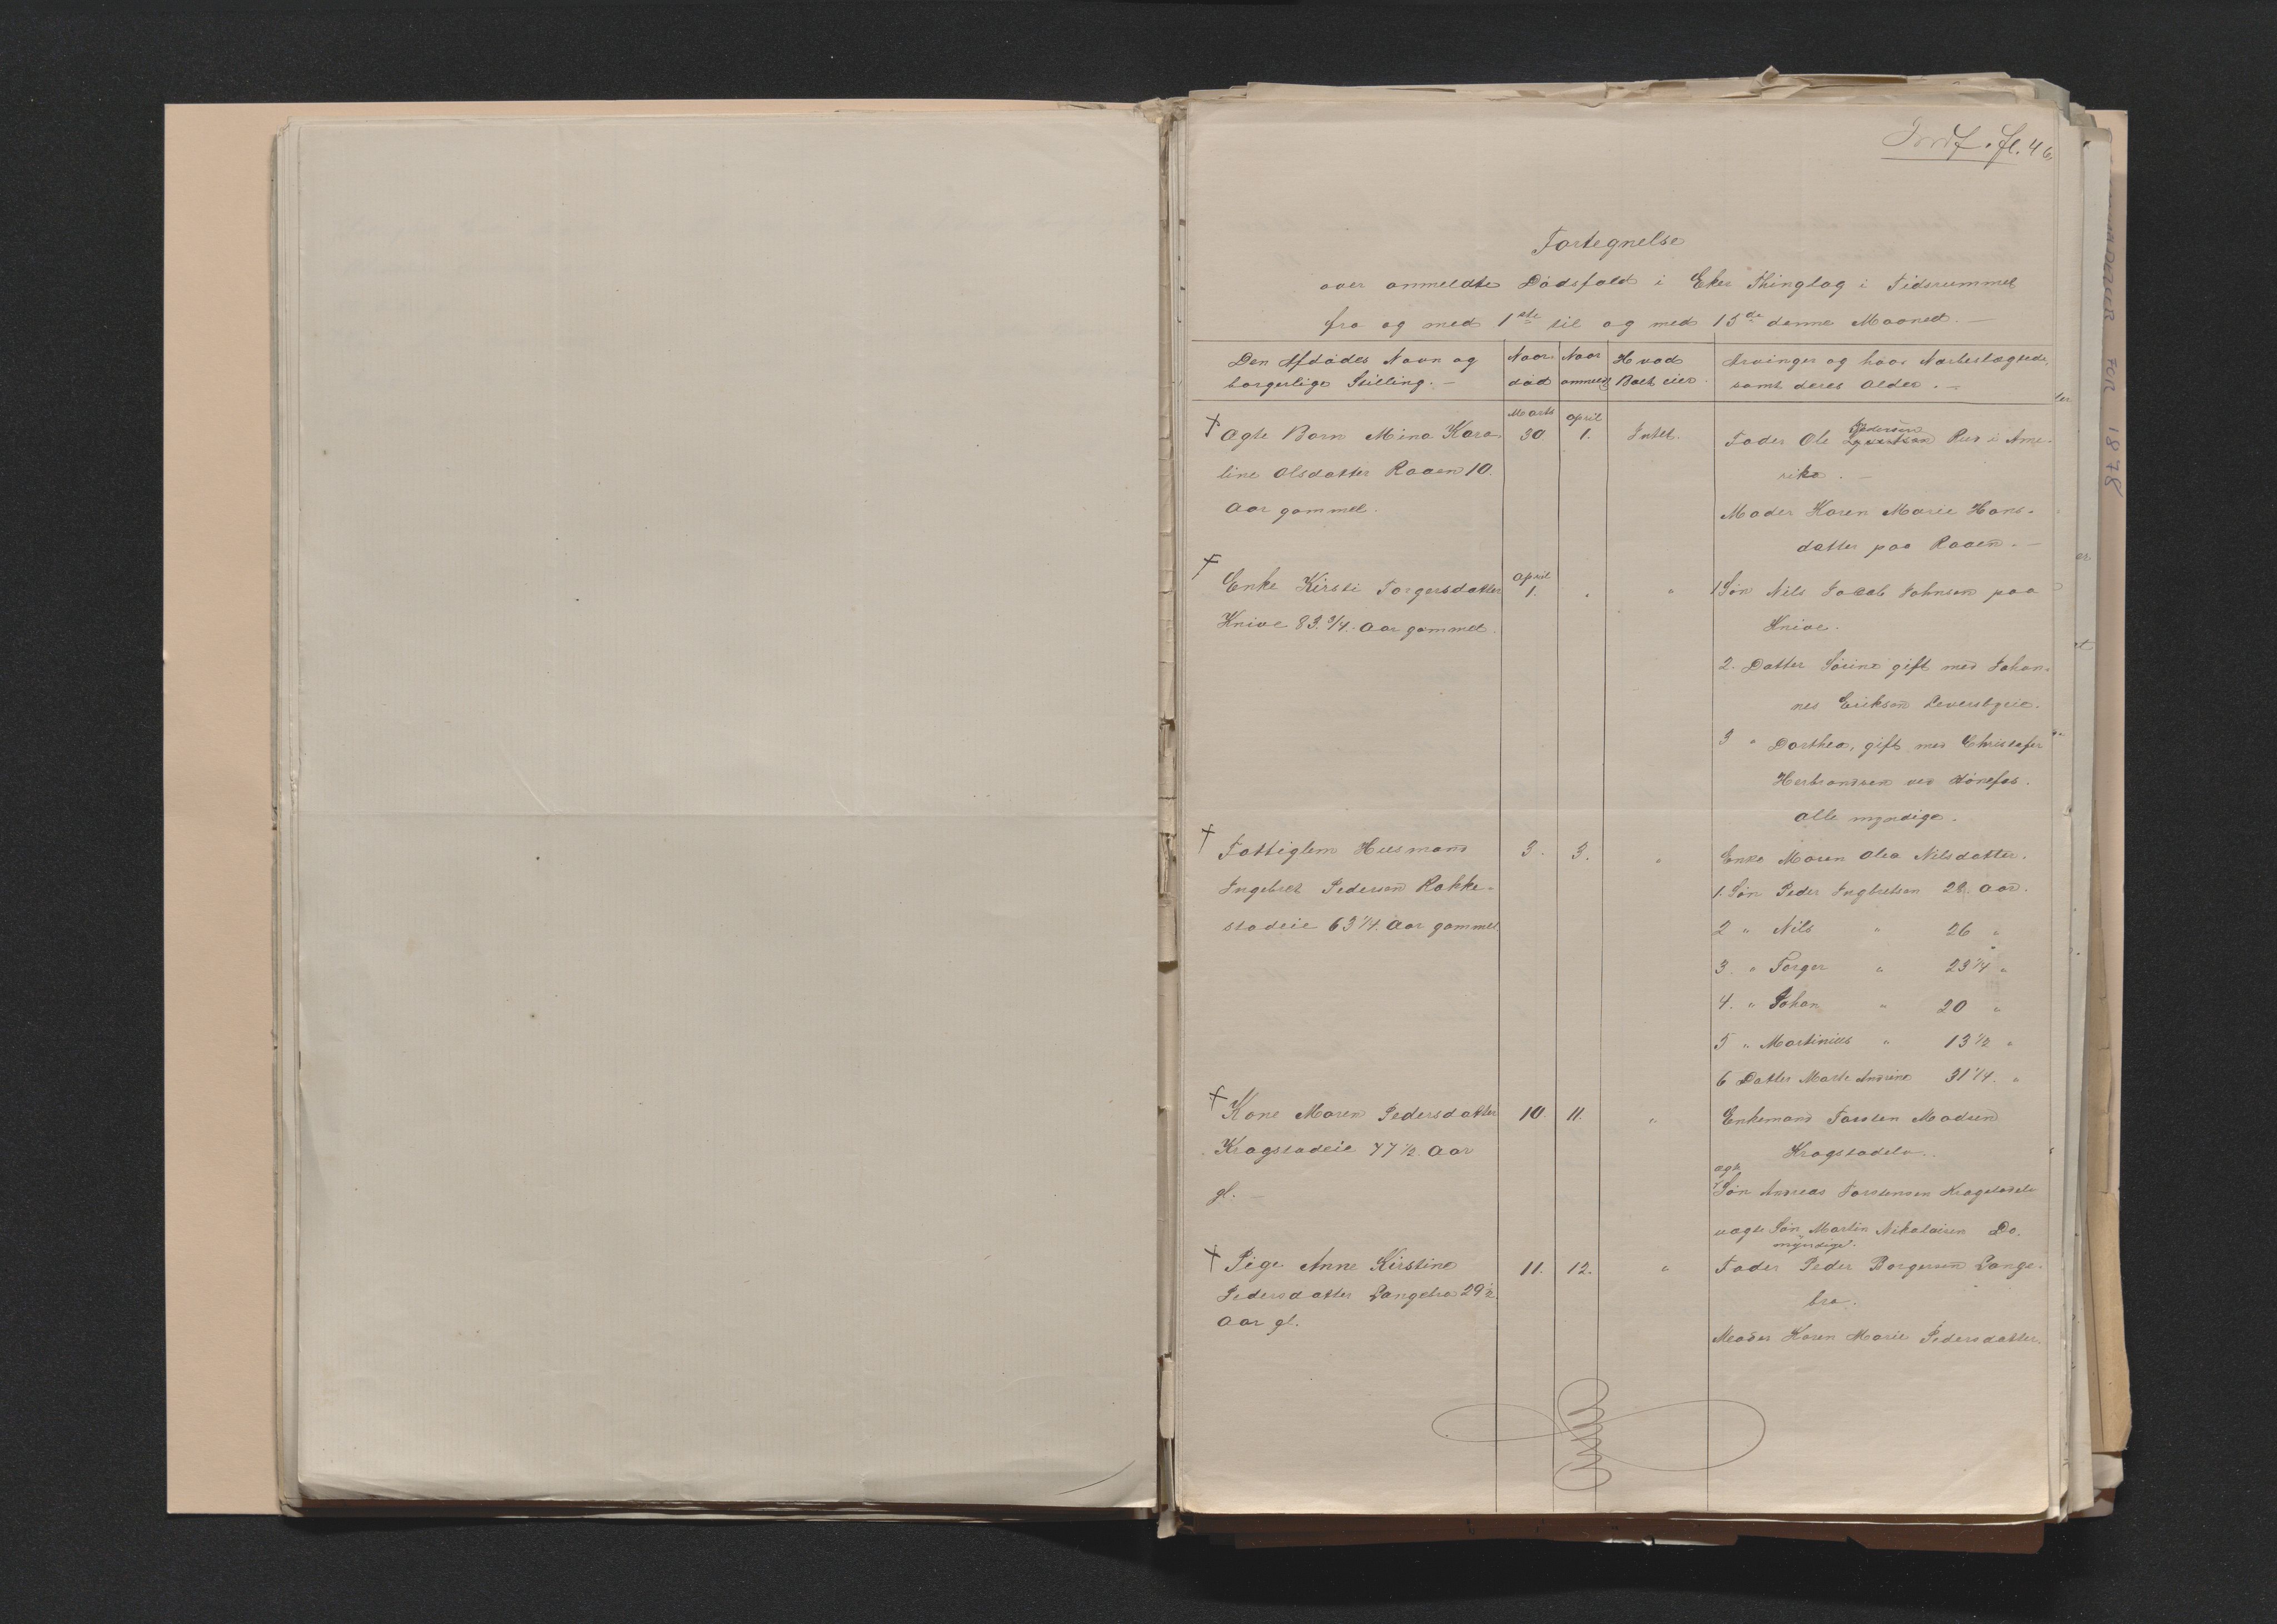 Indf. fl. 46
Fortegnelse
over anmeldte Dødsfald i Eker Thinglag i Tidsrummet
fra og med 1ste til og med 15de denne Maaned. —
Den Afdødes Navn og
borgerlige Stilling. —
Naar
død
Naar
anmeldt
Hvad
Boet eier
Arvinger og hans Nærbeslægtede,
samt deres Alder. —
Marts
April
† Ægte Barn Mina Karo-
30.
1.
Intet.
Fader Ole Pedersen Rud i Ame-
line Olsdatter Raaen 10.
rika. —
Aar gammel.
Moder Karen Marie Hans-
datter paa Raaen. —
†
Enke Kirsti Torgersdatter
April
1.
"
"
1 Søn Nils Jakob Johnsen paa
Knive 83. 3/4. Aar gammel.
Knive.
2. Datter Sørine gift med Johan-
nes Eriksen
3 " Dorthea, gift med Christofer
Herbrandsen ved Hønefos.
alle myndige.
† Fattiglem Husmand
3.
3.
"
Enke Maren Olea Nilsdatter.
Ingebret Pedersen Rokke-
1. Søn Peder Ingbretsen 28. Aar.
stadeie 63 1/4. Aar gammel
2 " Nils " 26 "
3. " Torger " 23 1/4 "
4. " Johan " 20 "
5 " Martinius " 13 1/2 "
6 Datter Marte Andrine 31 1/4. "
† Kone Maren Pedersdatter
10.
11.
"
Enkemand Torsten Madsen
Kragstadeie 77 1/2 Aar
Kragstadeie.
gl. —
ægte
Søn Andreas Torstensen Kragstadeie
uægte Søn Martin Nikolaisen Do.
myndige.
† Pige Anne Kirstine
11.
12.
"
Fader Peder Borgersen Lange-
Pedersdatter Langebro 29 1/2.
bro.
Aar gl.
Moder Karen Marie Pedersdatter.
FOR 1878